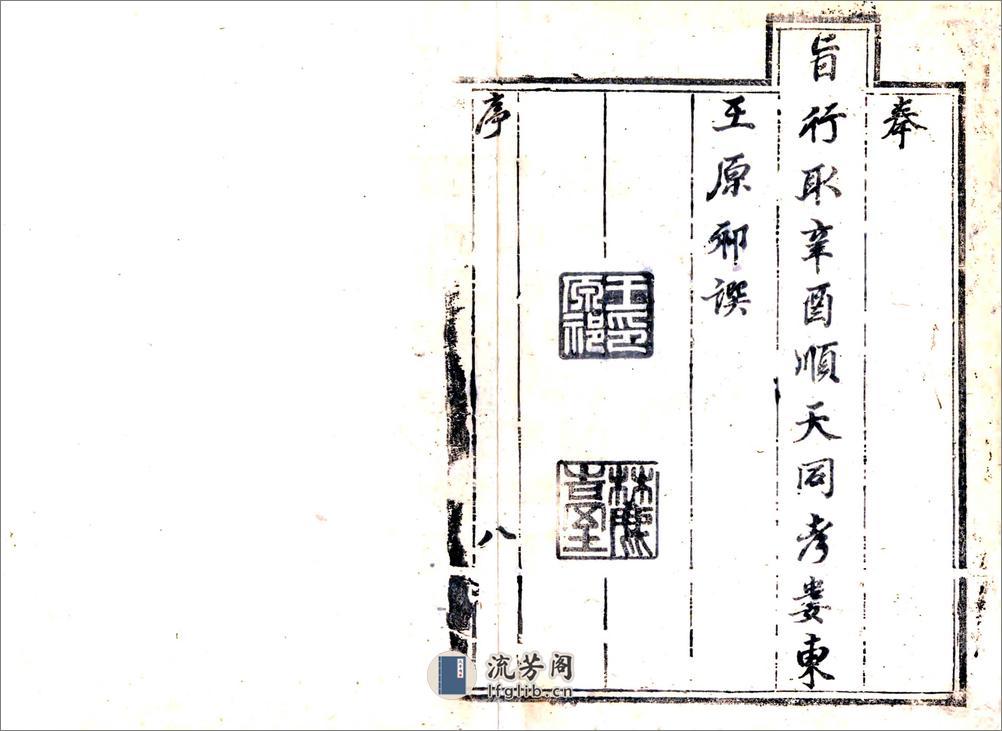 奉
旨行取辛酉順天同考婁東
王原祁譔
王印原祁
麓臺
序
八
流芳阁
lfglib.cn